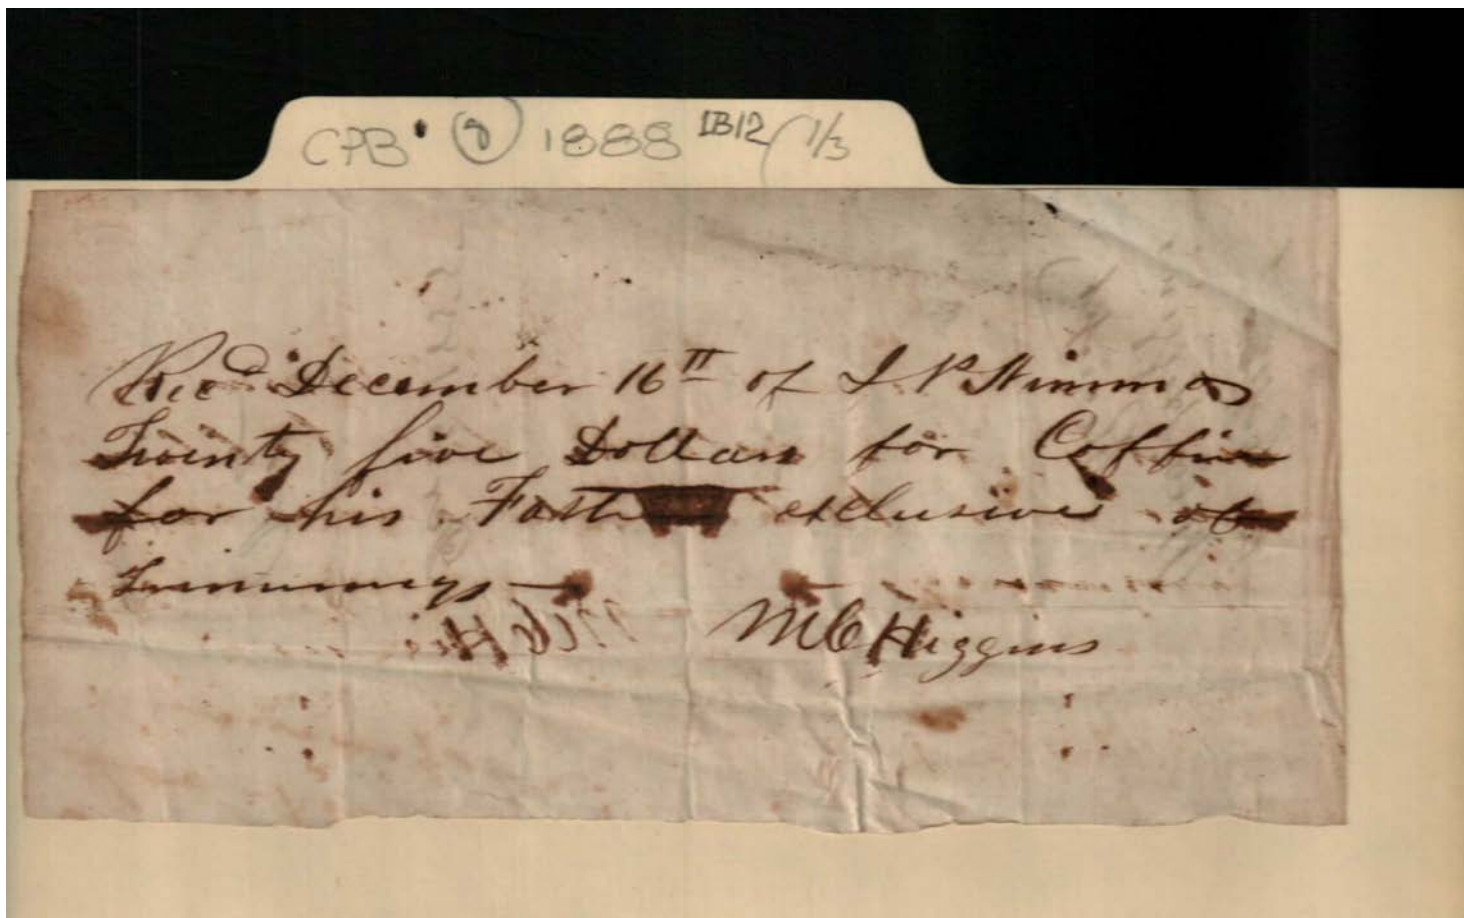 CPB 8 1888 IB12 1/3
Recd December 16th of J P Nimmo
Twenty five Dollars for Coffin
for his Father exclusive of
Trimmings
M C Higgins